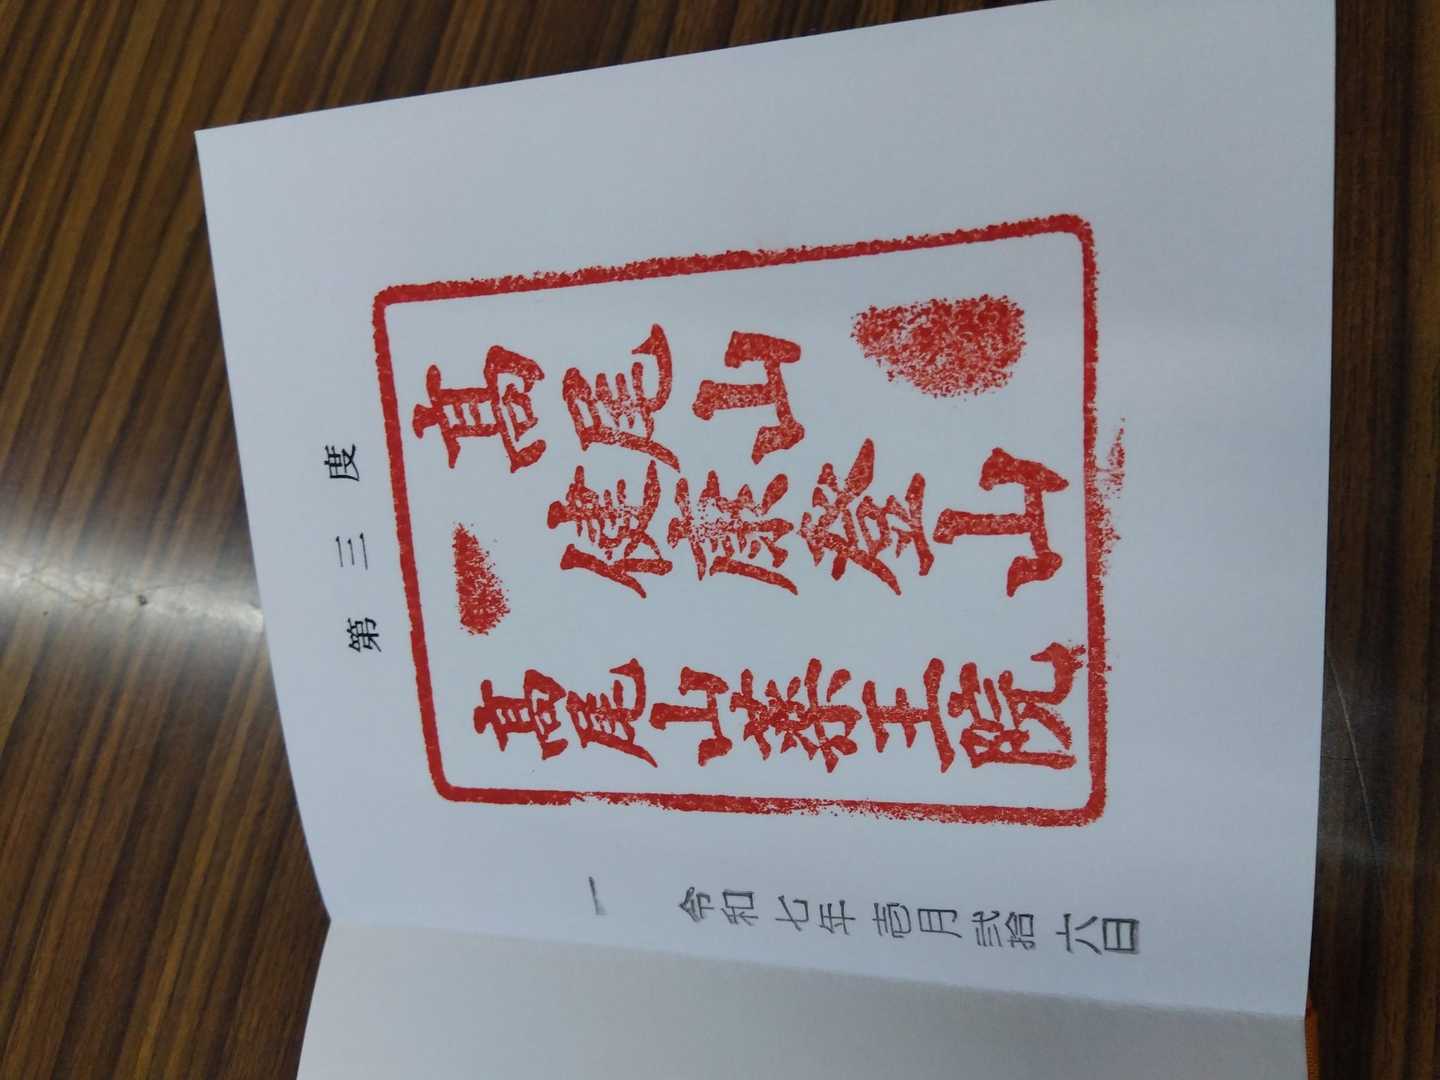 第三度
髙尾山
健康登山
髙尾山薬王院
一 令和七年壱月弐拾六日